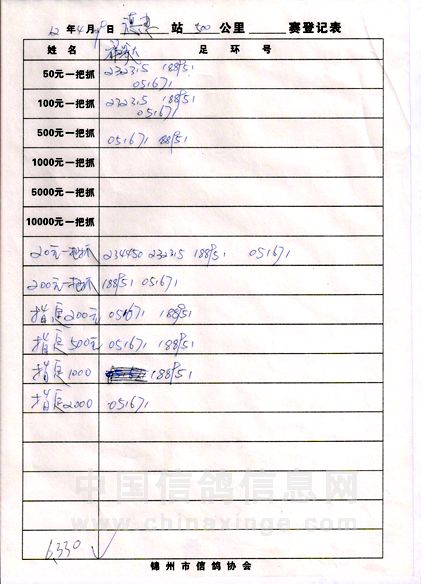 12年4月9日 德惠 站 500 公里 赛登记表
姓名 足环号
50元一把抓 232315 188951
051671
100元一把抓 232315 188951
051671
500元一把抓 051671 188951
1000元一把抓
5000元一把抓
10000元一把抓
20元一把抓 234450 232315 188951 051671
200元一把抓 188951 051671
指定200元 051671 188951
指定500元 051671 188951
指定1000 188951
指定2000 051671
中国信鸽信息网
www.chinaxinge.com
6330
锦州市信鸽协会